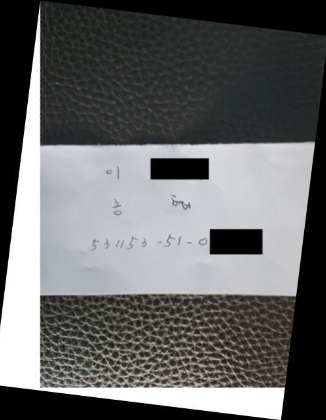 이
농
531153-51-0